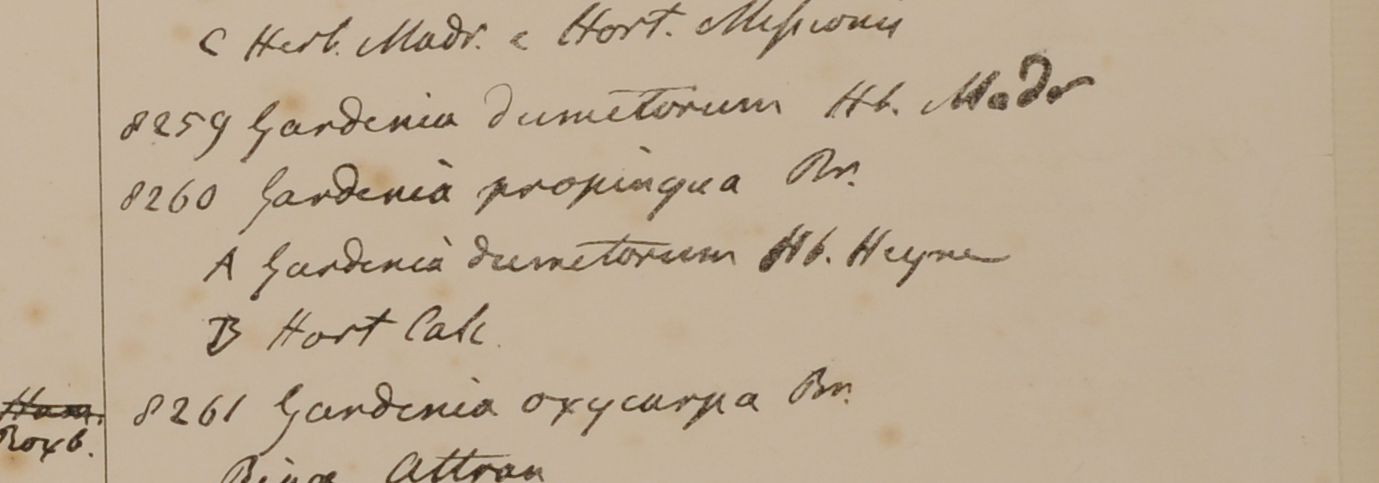 C Herb. Madr. e Hort. Missionis
8259 Gardenia dumetorum Hb. Madr
8260 Gardenia propinqua Br.
A Gardenia dumetorum Hb. Heyne
B Hort Calc
Ham.
8261 Gardenia oxycarpa Br.
Roxb.
Attran